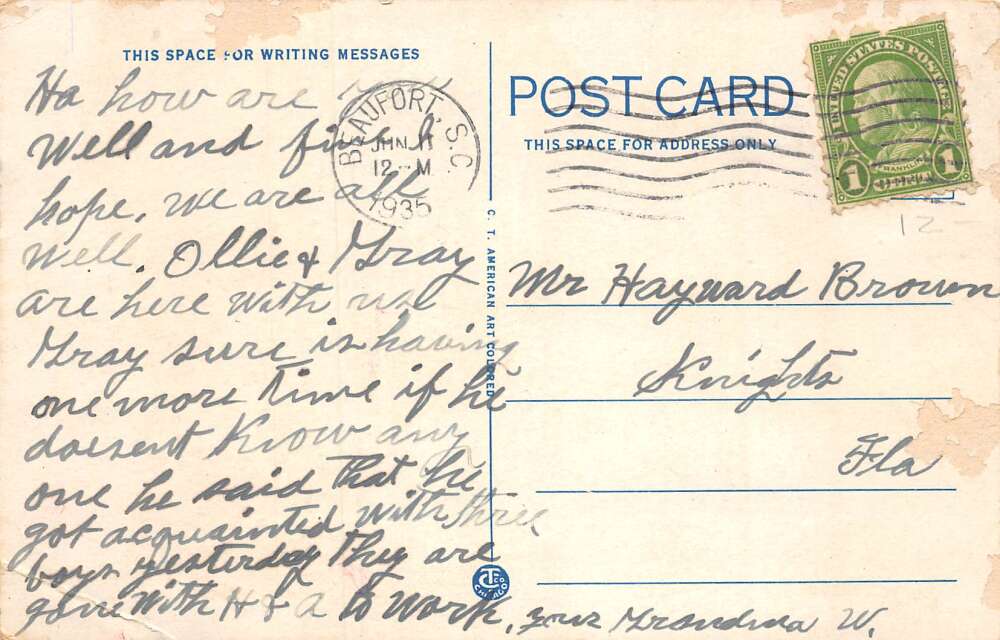 THIS SPACE FOR WRITING MESSAGES
Ha how are
Well and fine I
hope, we are all
well. Ollie & Gray
are here with us
Gray sure is having
one more time if he
doesent know any
one he said that he
got acquainted with three
boys yesterday they are
gone with H & A to work,
your Grandma W.
BEAUFORT, S.C.
JUN 11
12-M
1935
POST CARD
THIS SPACE FOR ADDRESS ONLY
UNITED STATES POSTAGE
FRANKLIN
1 1
12-
Mr Hayward Brown
Knights
Fla
C. T. AMERICAN ART COLORED
CT CO
CHICAGO